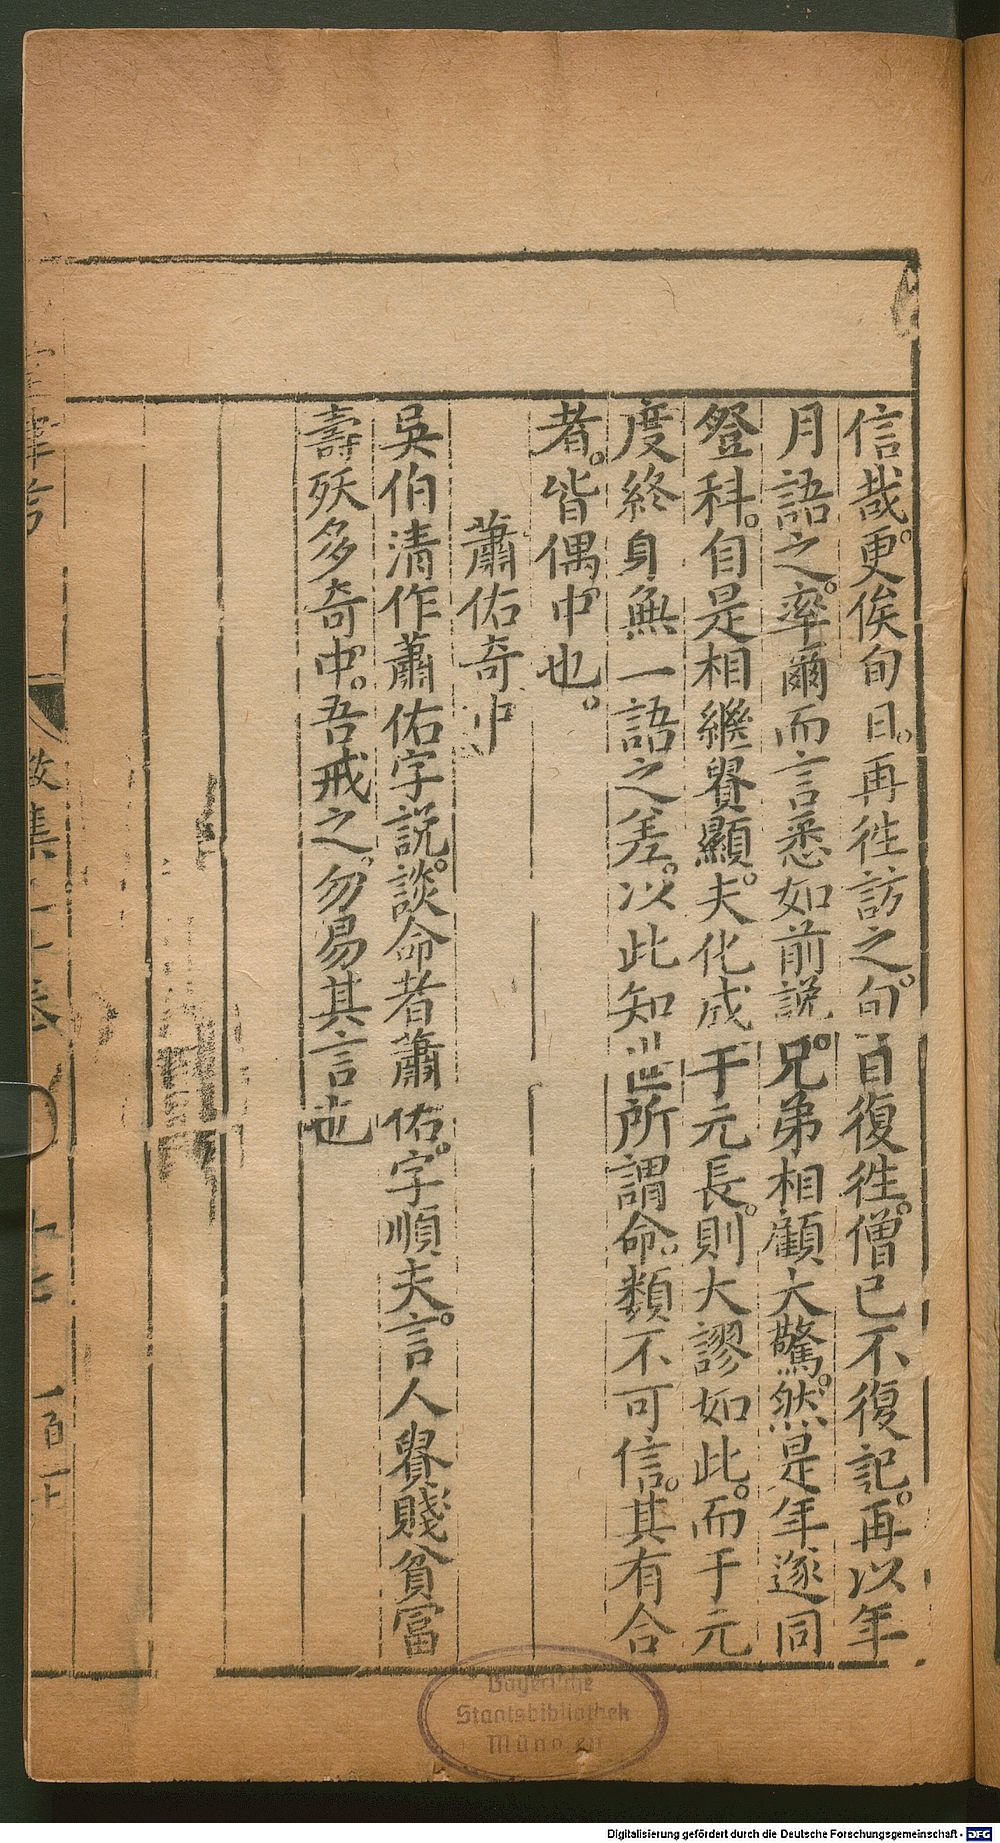 信哉。更俟旬日。再徃訪之。旬日復徃。僧已不復記。再以年
月語之。率爾而言悉如前說。兄弟相顧大驚。然是年遂同
登科。自是相繼貴顯。夫化成于元長。則大謬如此。而于元
度終身無一語之差。以此知世所謂命。類不可信。其有合
者。皆偶中也。
蕭佑奇中
吳伯清作蕭佑字說。談命者蕭佑。字順夫。言人貴賤貧冨
壽殀多奇中。吾戒之。勿易其言也
Bayerische
Staatsbibliothek
München
Digitalisierung gefördert durch die Deutsche Forschungsgemeinschaft - DFG